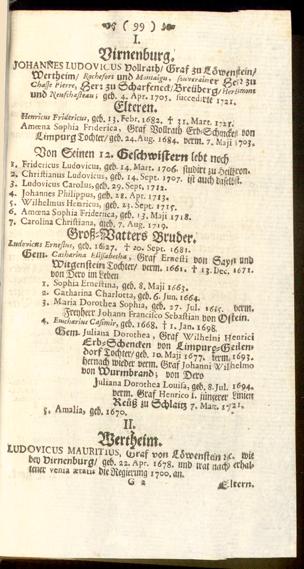 ( 99 )
I.
Virnenburg.
JOHANNES LUDOVICUS Vollrath/ Graf zu Löwenstein/
Wertheim/ Rochefort und Montaigu, souverainer Herr zu
Chasse Pierre, Herr zu Scharfeneck/ Breüberg/ Herbimont
und Neufchasteau; geb. 4. Apr. 1705. succedirte 1721.
Elteren.
Henricus Fridericus, geb. 13. Febr. 1682. † 31. Mart. 1721.
Amœna Sophia Friderica, Graf Vollrath Erb-Schencken von
Limpurg Tochter/ geb. 24. Aug. 1684. verm. 7. Maji 1703.
Von Seinen 12. Geschwistern lebt noch
1. Fridericus Ludovicus, geb. 14. Mart. 1706. studirt zu Heilbron.
2. Christianus Ludovicus, geb. 14. Sept. 1707. ist auch daselbst.
3. Ludovicus Carolus, geb. 29. Sept. 1712.
4. Johannes Philippus, geb. 28. Apr. 1713.
5. Wilhelmus Henricus, geb. 23. Sept. 1715.
6. Amœna Sophia Friderica, geb. 13. Maji 1718.
7. Carolina Christiana, geb. 7. Aug. 1719.
Groß-Vatters Bruder.
Ludovicus Ernestus, geb. 1627. † 20. Sept. 1681.
Gem. Catharina Elisabetha, Graf Ernesti von Sayn und
Witgenstein Tochter/ verm. 1661. † 13. Dec. 1671.
von Dero im Leben
1. Sophia Ernestina, geb. 8. Maji 1663.
2. Catharina Charlotta, geb. 6. Jun. 1664.
3. Maria Dorothea Sophia, geb. 27. Jul. verm.
Freyherr Johann Francisco Sebastian von Ostein.
4. Eucharius Casimir, geb. 1668. † 1. Jan. 1698.
Gem. Juliana Dorothea, Graf Wilhelmi Henrici
Erb-Schencken von Limpurg-Geilen-
dorf Tochter/ geb. 10. Maji 1677. verm. 1693.
hernach wieder verm. Graf Johanni Wilhelmo
von Wurmbrand; von Dero
Juliana Dorothea Louisa, geb. 8. Jul. 1694.
verm. Graf Henrico I. jüngerer Linien
Reüß zu Schlaitz 7. Mart. 1721.
5. Amalia, geb. 1670.
II.
Wertheim.
LUDOVICUS MAURITIUS, Graf von Löwenstein &c. wie
bey Virnenburg/ geb. 22. Apr. 1678. und trat nach erhal-
tener venia ætatis die Regierung 1700. an.
G 2 Eltern.